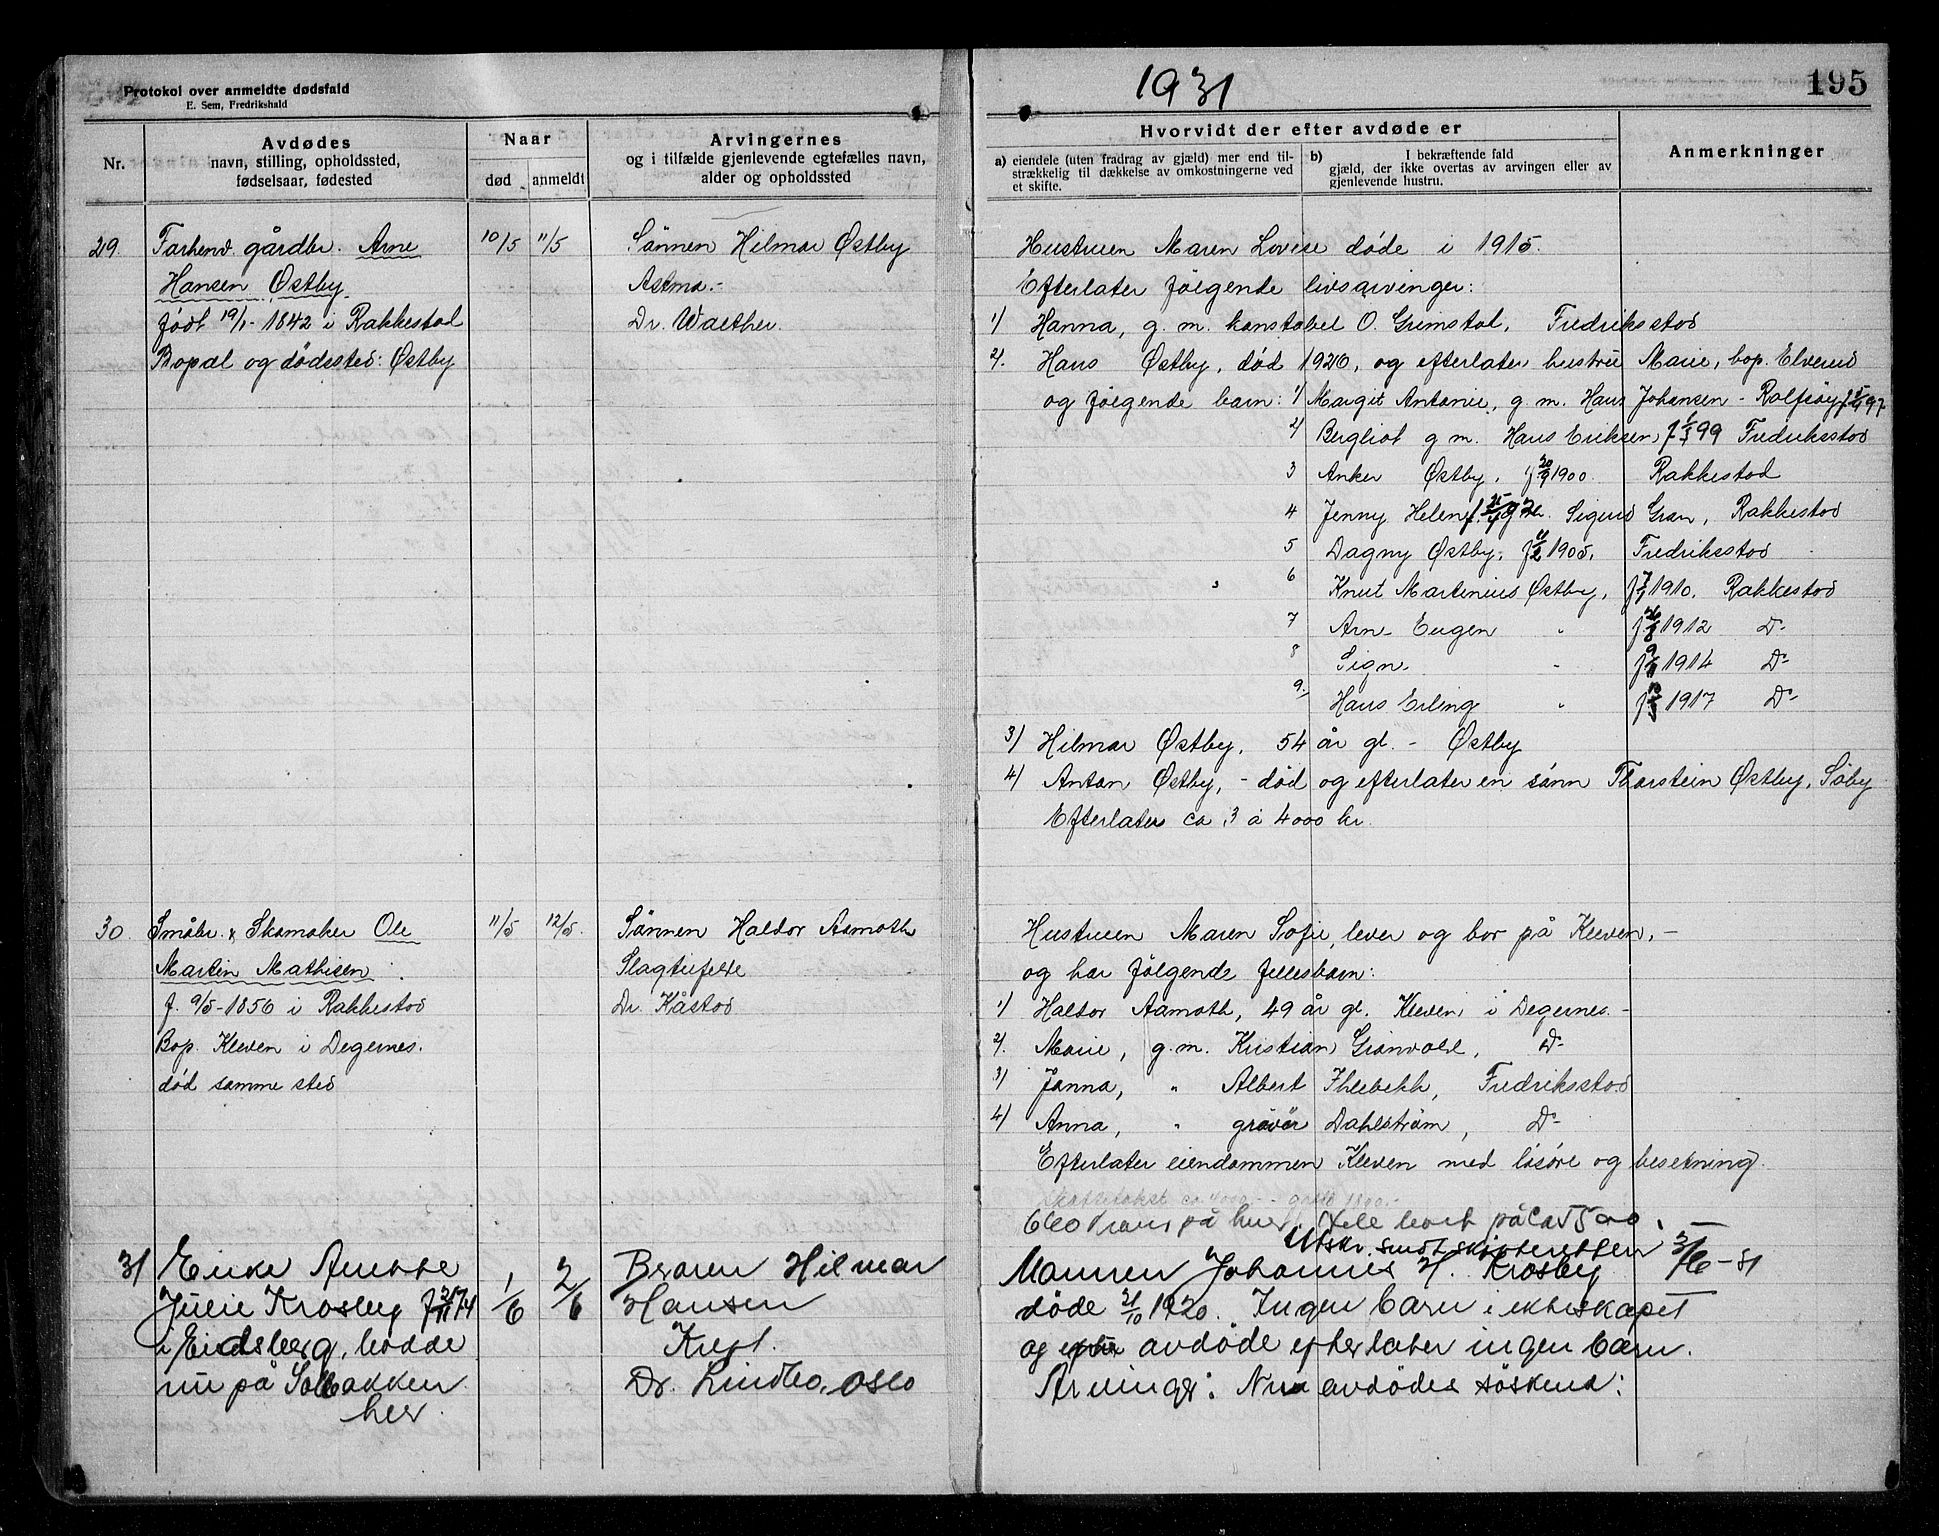 Protokol over anmeldte dødsfald
E. Sem, Fredrikshald
1931
195
Nr.
Avdødes
navn, stilling, opholdssted,
fødselsaar, fødested
Naar
død
anmeldt
Arvingernes
og i tilfælde gjenlevende egtefælles navn,
alder og opholdssted
Hvorvidt der efter avdøde er
a) eiendele (uten fradrag av gjæld) mer end til-
strækkelig til dækkelse av omkostningerne ved
et skifte.
b) I bekræftende fald
gjæld, der ikke overtas av arvingen eller av
gjenlevende hustru.
Anmerkninger
29. Forhenv. gårdbr. Arne
Hansen Østby
født 19/1-1842 i Rakkestad
Bopæl og dødssted: Østby
10/5 11/5
Sønnen Hilmar Østby
Astma.-
Dr. Walther
Hustruen Maren Lovise døde i 1915.
Efterlater følgende livsarvinger:
1) Hanna, g. m. konstabel O. Grimstal, Fredriksstad
2. Hans Østby, død 1920, og efterlater hustru Marie, bop. Elverud
og følgende barn: 1) Margit Antonie, g. m. Hans Johansen - Rolfsøy
2) Bergliot g m. Hans Eriksen, f 99 Fredriksstad
3 Anker Østby, f 1900 Rakkestad
4 Jenny Helene Sigurd Gran, Rakkestad
5 Dagny Østby, f 11/2 1905, Fredriksstad
6 Knut Martinius Østby, f 1910, Rakkestad
7 Arn- Eugen " f 1912 D-
8 Sign. - f 1914 D-
9. Hans Erling " f 1917 D-
3) Hilmar Østby, 54 år gl. - Østby
4) Anton Østby, - død og efterlater en sønn Thorstein Østby, Søby
Efterlater ca 3 à 4000 kr.
30. Småbr. & Skomaker Ole
Martin Mathisen
f. 9/5-1850 i Rakkestad
Bop. Kleven i Degernes.
død samme sted
11/5 12/5.
Sønnen Haldor Aamoth
Slagtilfelle
Dr. Kåstad
Hustruen Maren Sofie, lever og bor på Kleven, -
og har følgende fellesbarn:
1) Haldor Aamoth, 49 år gl. Kleven i Degernes. -
2. Marie, g. m. Kristian Grønvold, D-
3) Janna, " Albert Ihlebekk, Fredriksstad
4) Anna, " gravør Dahlstrøm, D-
Efterlater eiendommen Kleven med løsøre og besetning.
Skattetakst ca 4000.-
på huer
Utskr. sendt skifteretten 3/6-31
31 Erike Anette
Julie Krosby f 74
i Eidsberg, bodde
nu på Solbakken
her.
1/6 2/6
Broren Hilmar
Hansen
Kreft.
Dr. Lindbo, Oslo
Mannen Johannes H. Krosby
døde 21/10 1920. Ingen barn i ekteskapet
og avdøde efterlater ingen barn.
Arvinger: Nu avdødes søskend: